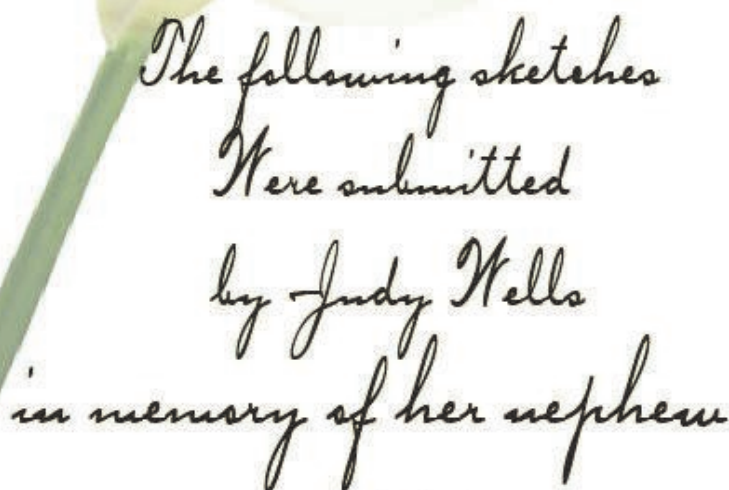 The following sketches
Were submitted
by Judy Wells
in memory of her nephew